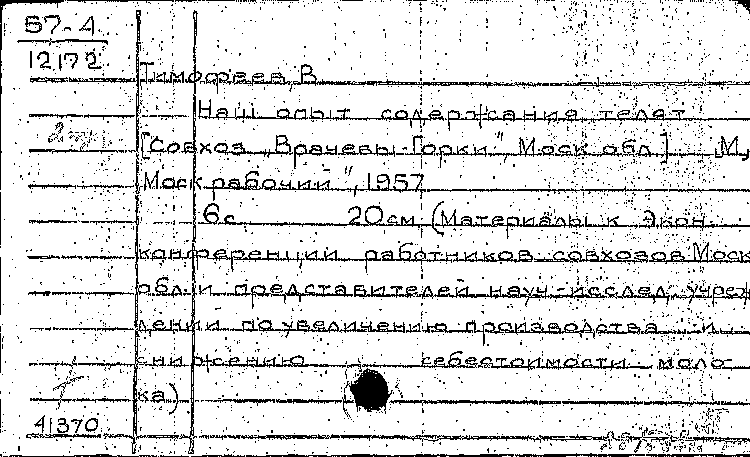 57-4
12172
Тимофеев, В.
Наш опыт содержания телят
[Совхоз „Врачевы-Горки", Моск обл.] М,
Моск рабочий", 1957
6с 20см (Материалы к экон.
конференции работников совхозов Моск
обл. и представителей науч.-исслед. учреж
дений по увеличению производства и
снижению себестоимости моло
ка)
41370